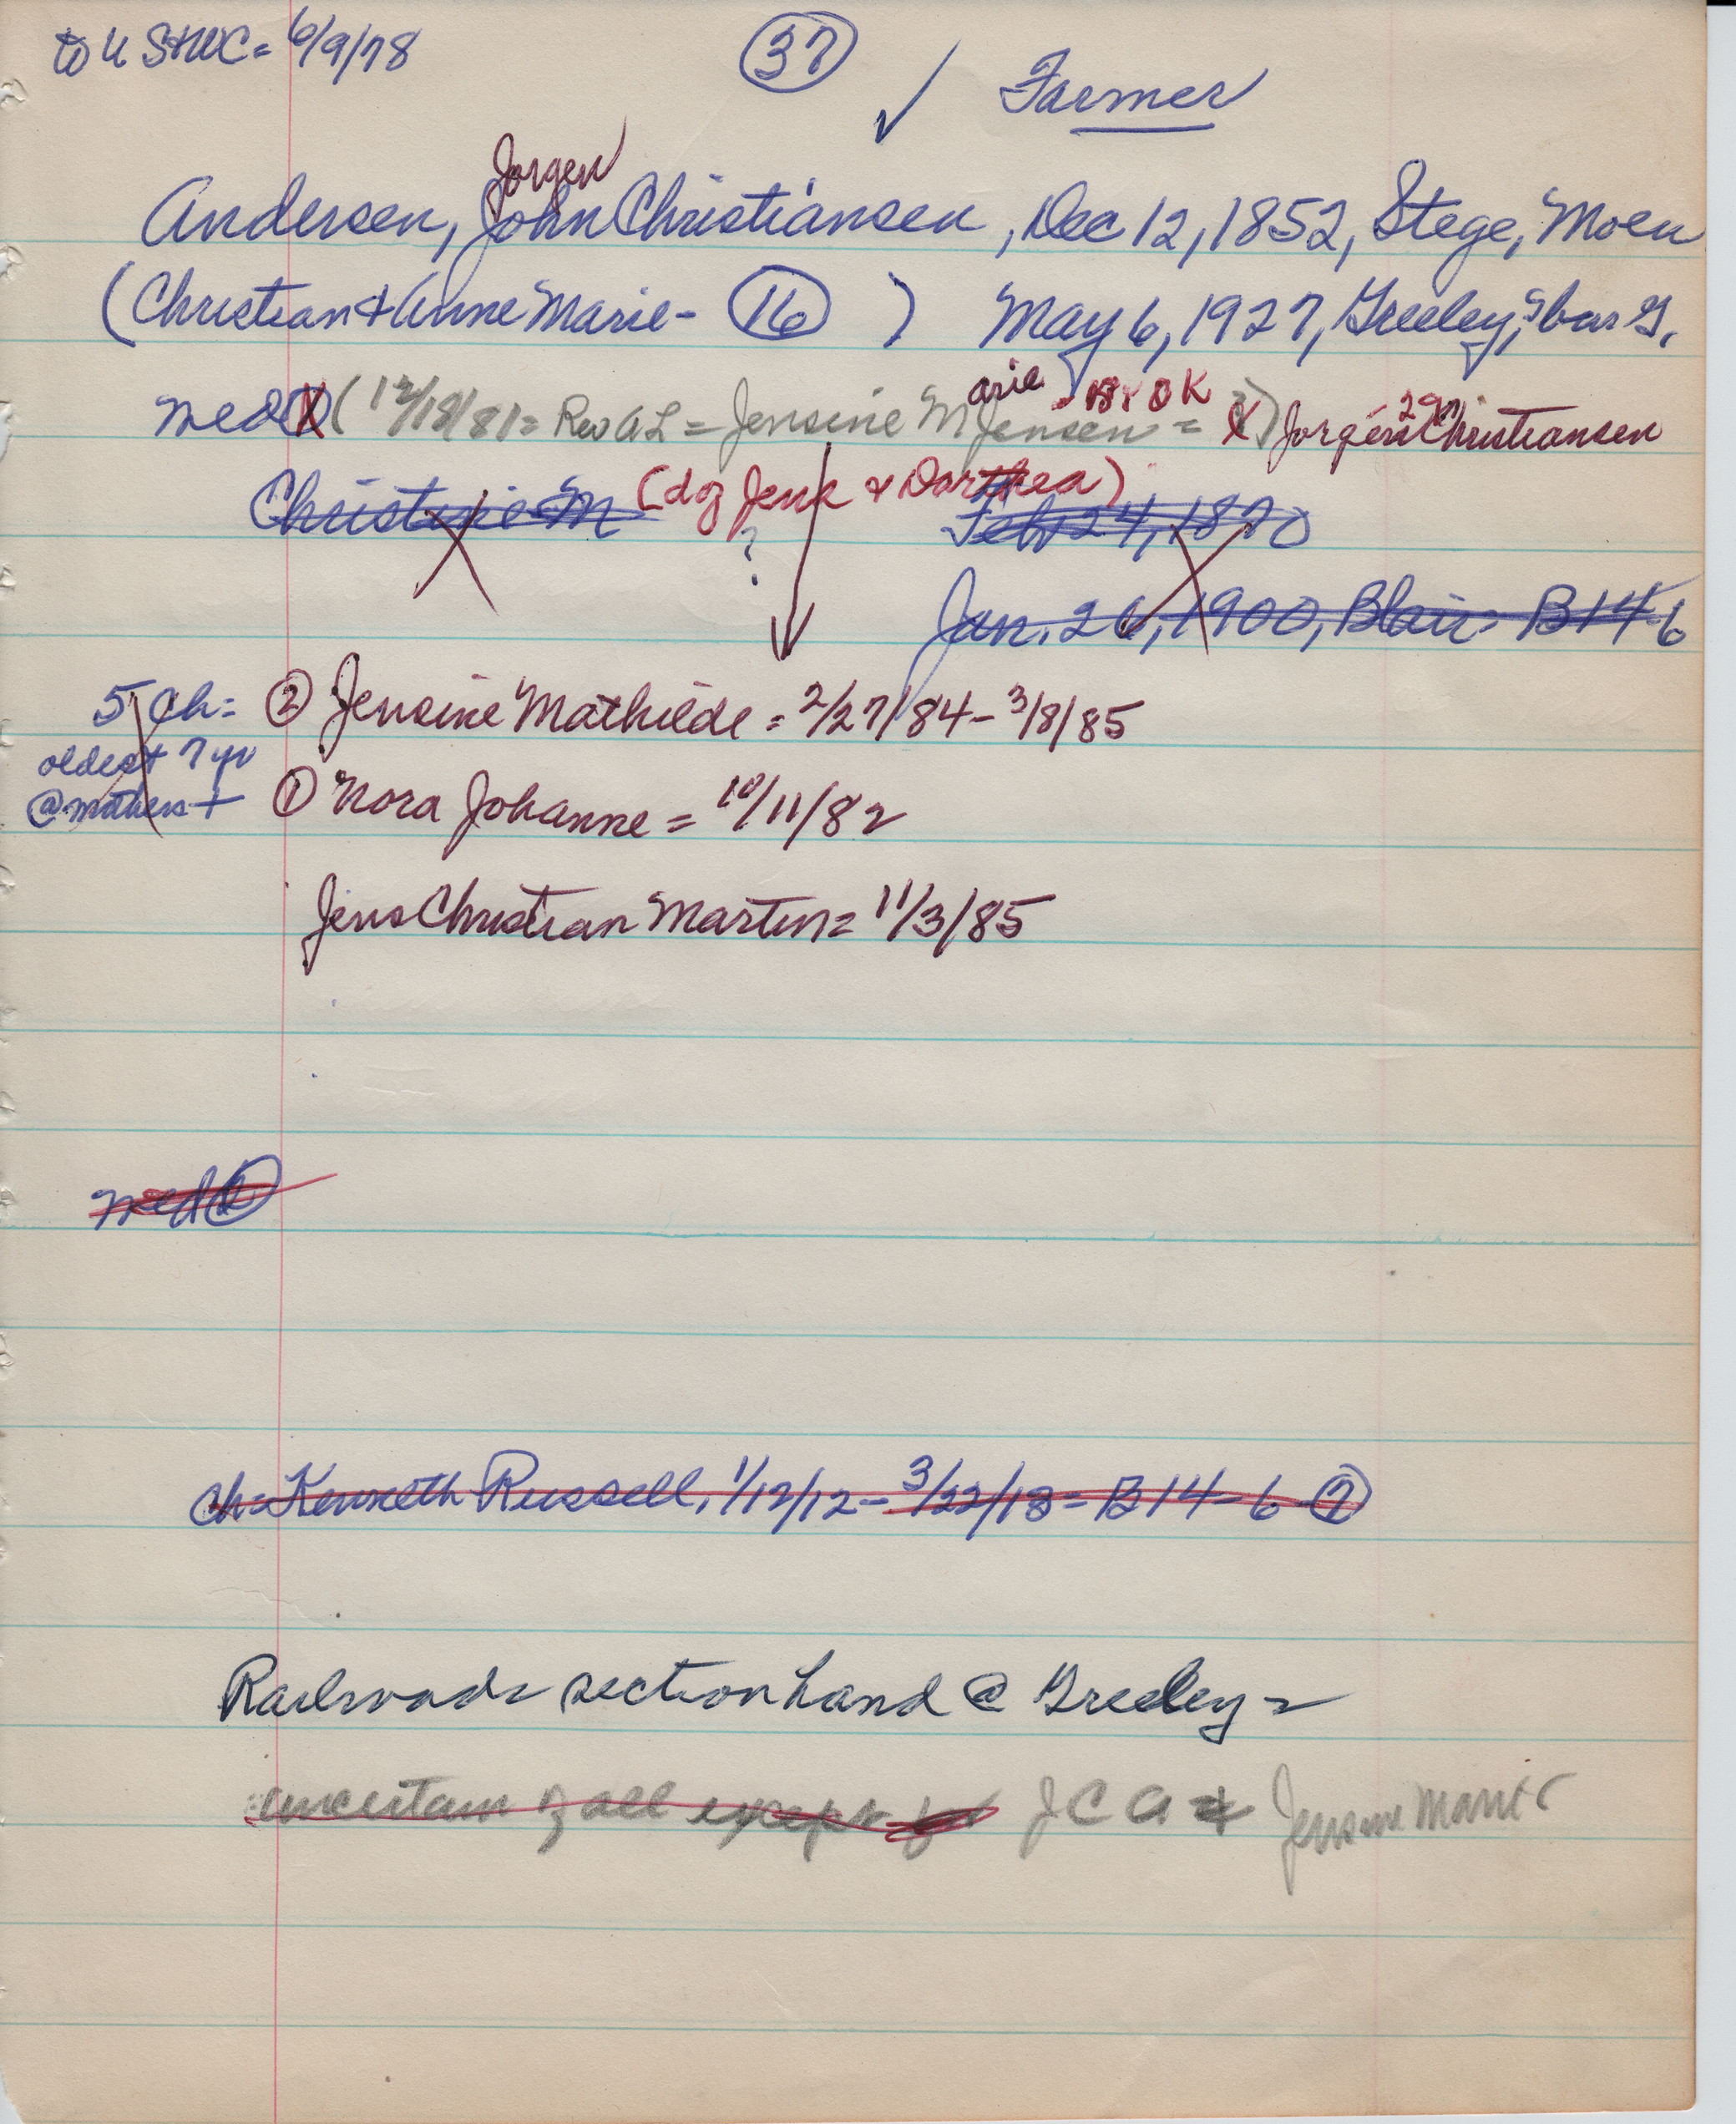 to U S & WC = 6/9/78
37
✓ Farmer
Jorgen
Andersen, John Christiansen, Dec 12, 1852, Stege, Moen
(Christian & Anne Marie - 16) May 6, 1927, Greeley,
arie OK 29
med (12/18/81 = Rev AL = Jensine M Jensen = ?) X Jorgen Christiansen
(dof Jens & Dorthea)
Christine M Feb 24, 1870
?
Jan. 26, 1900, Blair B14-6
5 ch = ② Jensine Mathilde = 2/27/84 - 3/8/85
oldest 7 yr
@ mothers + ① Nora Johanne = 10/11/82
Jens Christian Martin = 11/3/85
med ②
ch = Kenneth Russell, 1/12/12 - 3/22/18 = B14-6 - ②
Railroad = section hand @ Greeley =
uncertain of all except for J C A & Jensine Marie